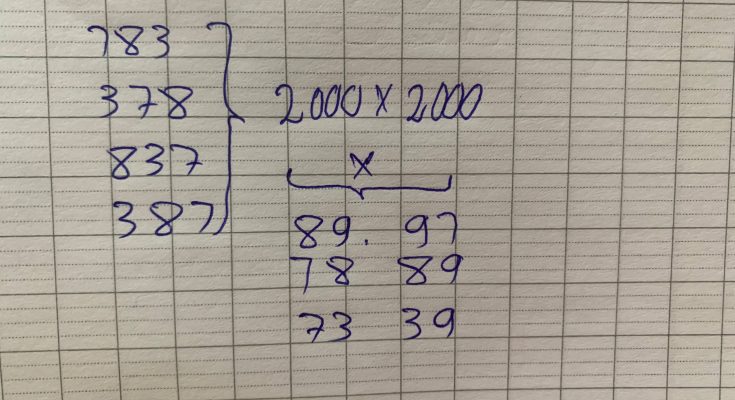 783
378
837
387
2000 x 2000
x
89. 97
78 89
73 39